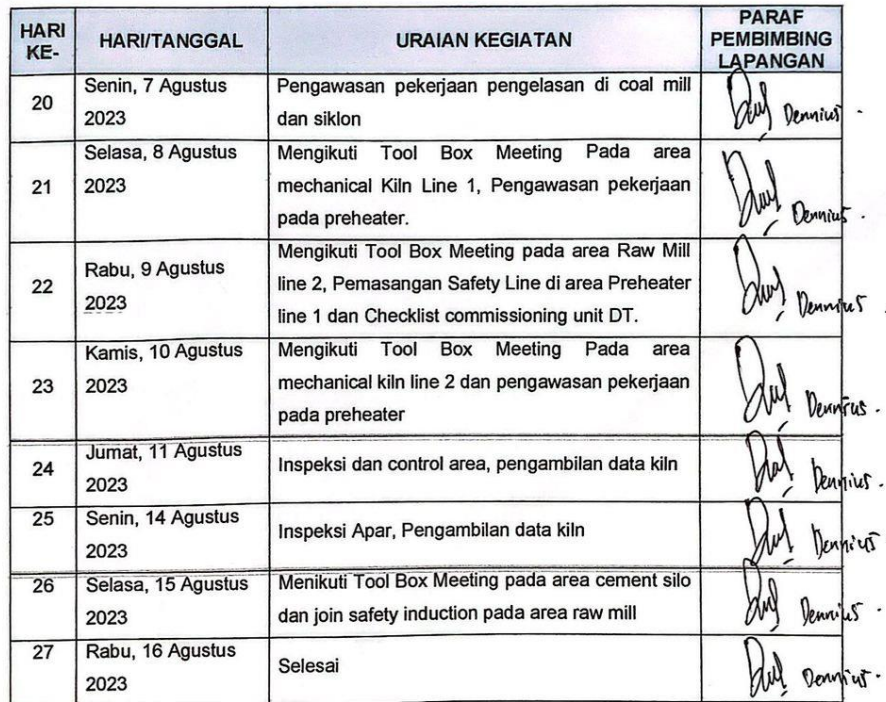 HARI KE- HARI/TANGGAL URAIAN KEGIATAN PARAF PEMBIMBING LAPANGAN
20 Senin, 7 Agustus Pengawasan pekerjaan pengelasan di coal mill
2023 dan siklon Dennius.
21 Selasa, 8 Agustus Mengikuti Tool Box Meeting Pada area
2023 mechanical Kiln Line 1, Pengawasan pekerjaan
pada preheater. Dennius.
22 Rabu, 9 Agustus Mengikuti Tool Box Meeting pada area Raw Mill
2023 line 2, Pemasangan Safety Line di area Preheater
line 1 dan Checklist commissioning unit DT. Dennius.
23 Kamis, 10 Agustus Mengikuti Tool Box Meeting Pada area
2023 mechanical kiln line 2 dan pengawasan pekerjaan
pada preheater Dennius.
24 Jumat, 11 Agustus Inspeksi dan control area, pengambilan data kiln
2023 Dennius.
25 Senin, 14 Agustus Inspeksi Apar, Pengambilan data kiln
2023 Dennius
26 Selasa, 15 Agustus Menikuti Tool Box Meeting pada area cement silo
2023 dan join safety induction pada area raw mill Dennius.
27 Rabu, 16 Agustus Selesai
2023 Dennius.